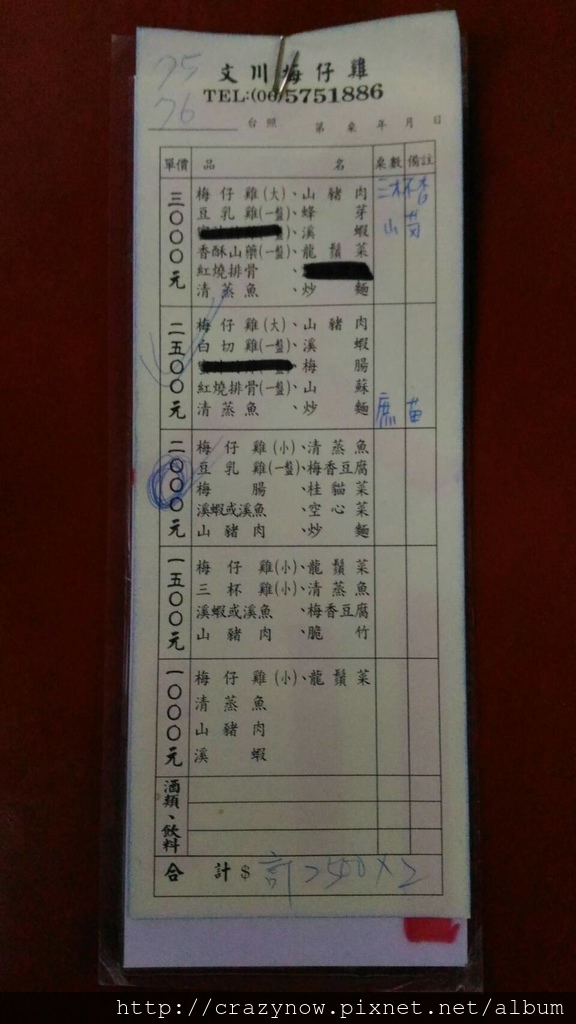 75
76
文川梅仔雞
TEL:(06)5751886
台照 第 桌 年 月 日
單價 品 名 桌數 備註
三〇〇〇元
梅仔雞(大)、山豬肉
豆乳雞(一盤)、蜂芽
、溪蝦
香酥山藥(一盤)、龍鬚菜
紅燒排骨、
清蒸魚、炒麵
三杯
山
二五〇〇元
梅仔雞(大)、山豬肉
白切雞(一盤)、溪蝦
(一盤)、梅腸
紅燒排骨(一盤)、山蘇
清蒸魚、炒麵
苗
二〇〇〇元
梅仔雞(小)、清蒸魚
豆乳雞(一盤)、梅香豆腐
梅腸、桂貓菜
溪蝦或溪魚、空心菜
山豬肉、炒麵
一五〇〇元
梅仔雞(小)、龍鬚菜
三杯雞(小)、清蒸魚
溪蝦或溪魚、梅香豆腐
山豬肉、脆竹
一〇〇〇元
梅仔雞(小)、龍鬚菜
清蒸魚
山豬肉
溪蝦
酒類、飲料
合計$ 計2500×2
http://crazynow.pixnet.net/album